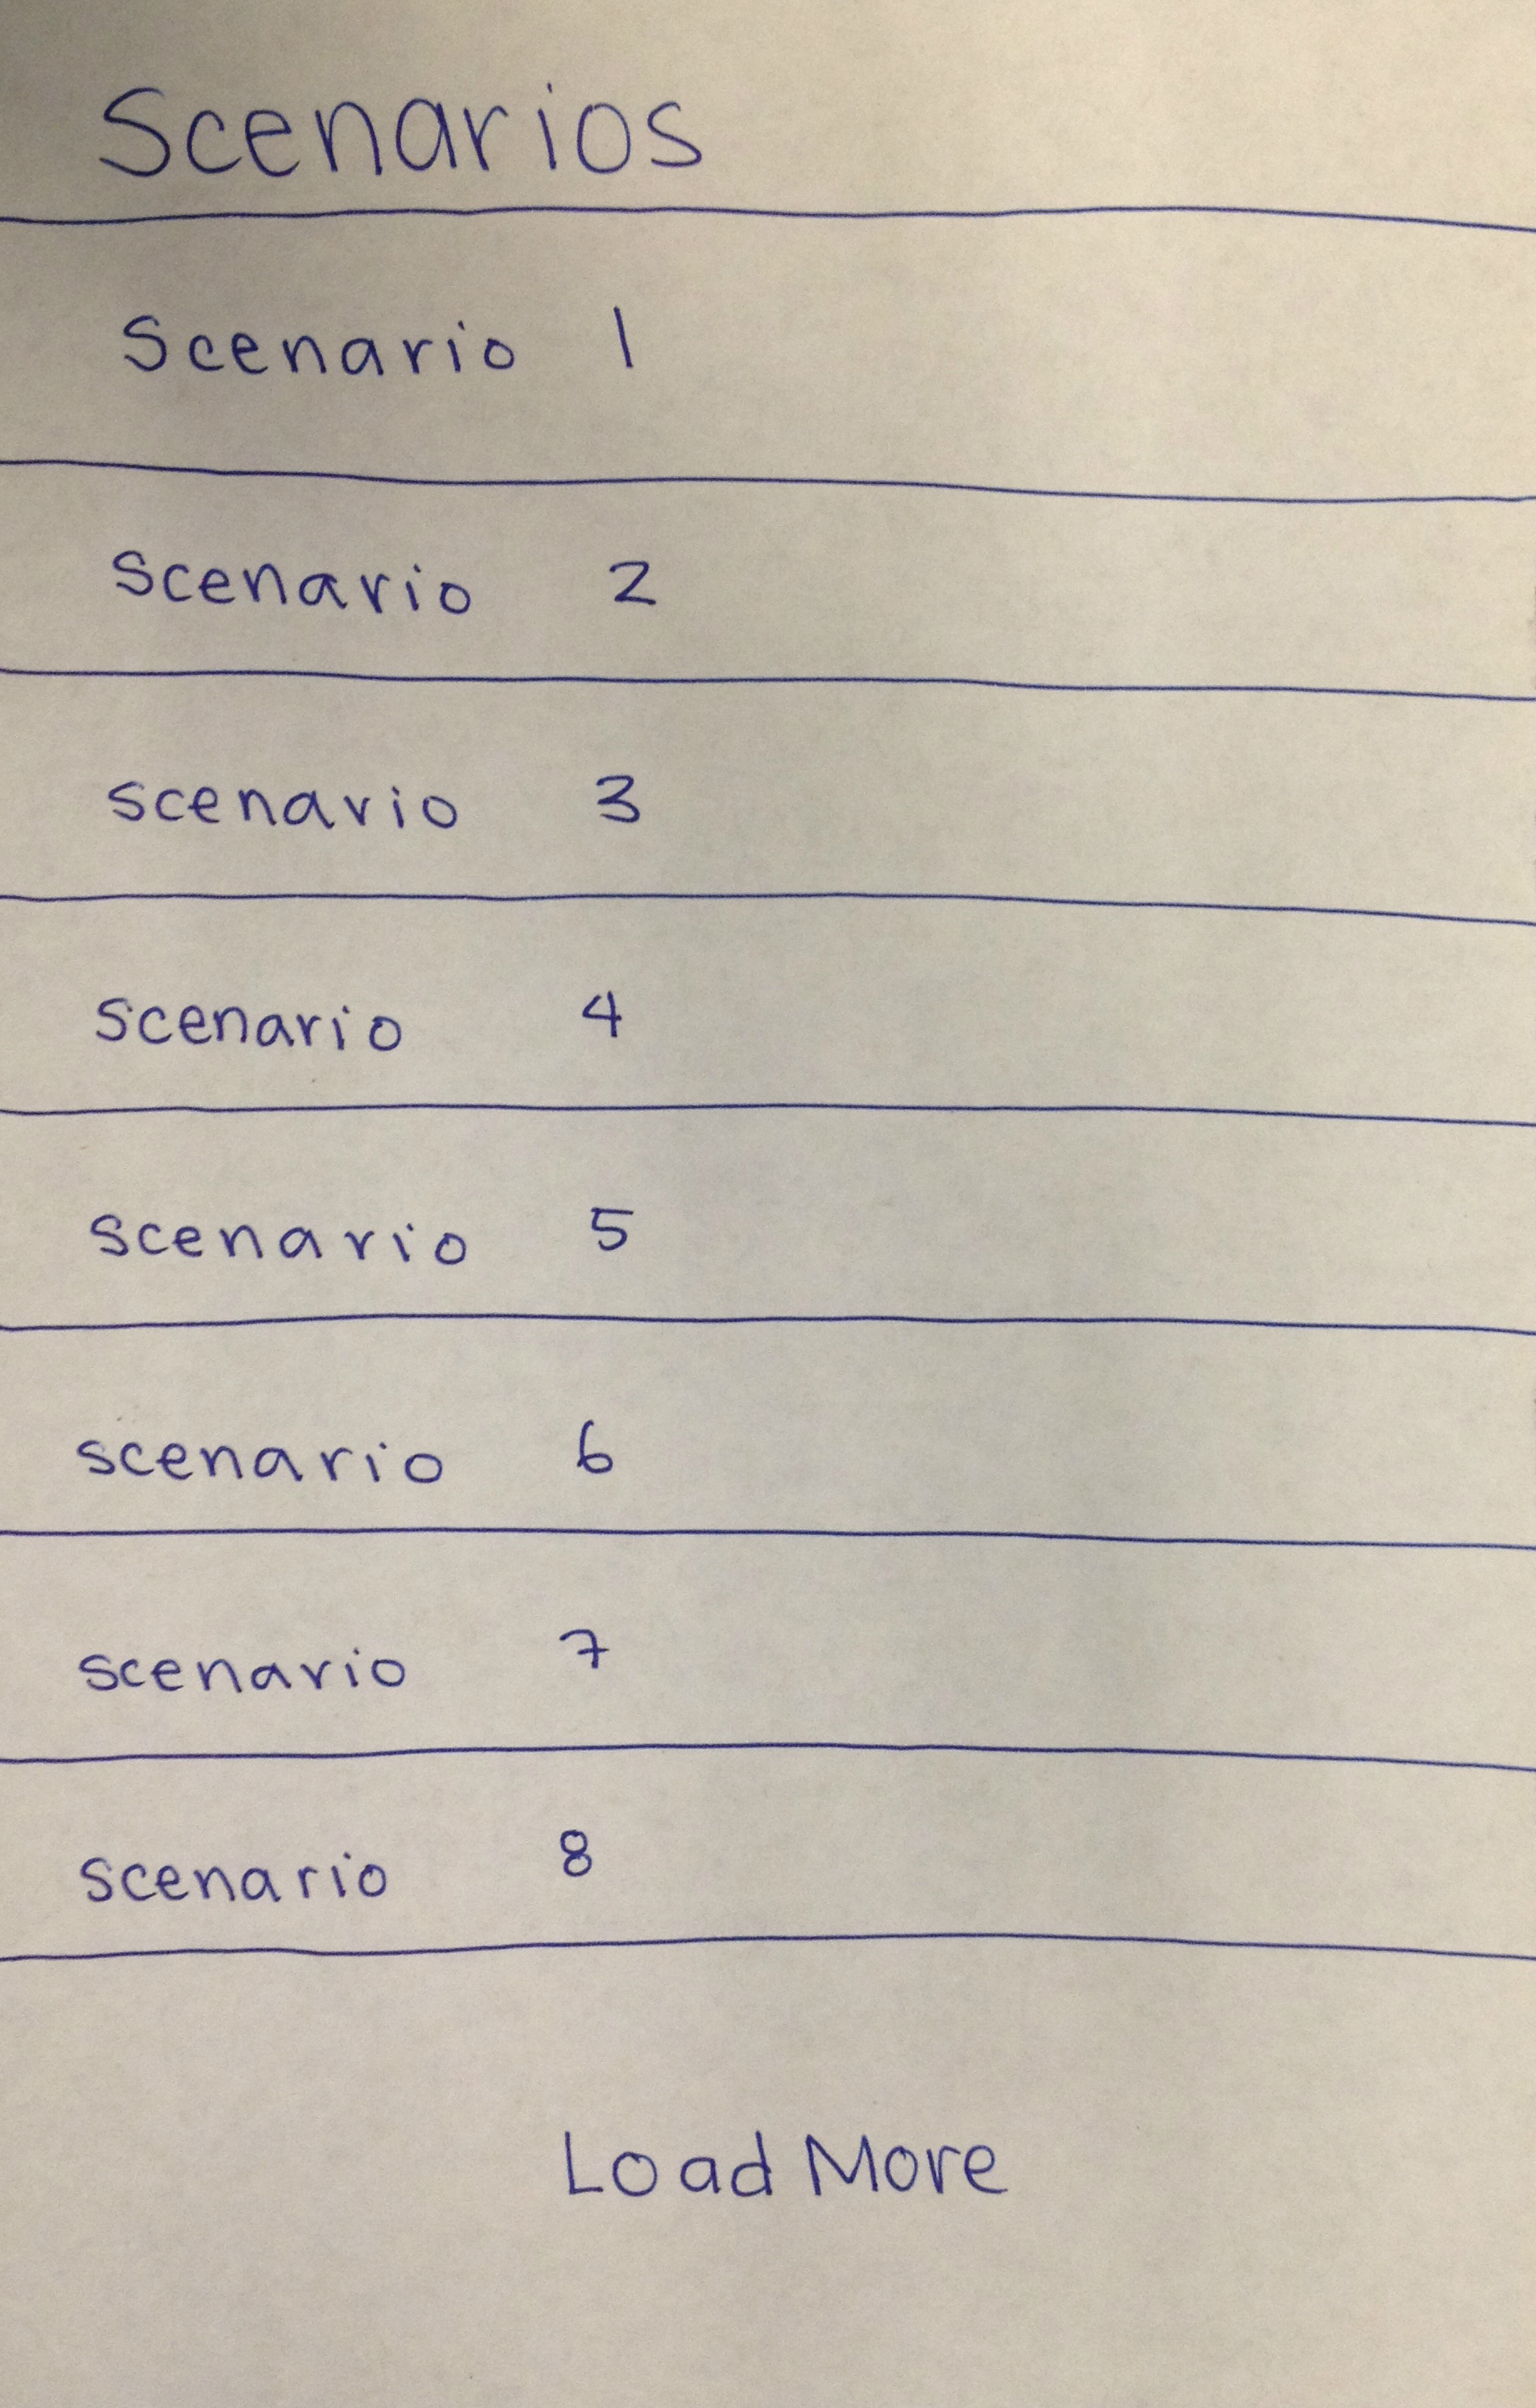 Scenarios
Scenario 1
scenario 2
scenario 3
scenario 4
scenario 5
scenario 6
scenario 7
scenario 8
Load More